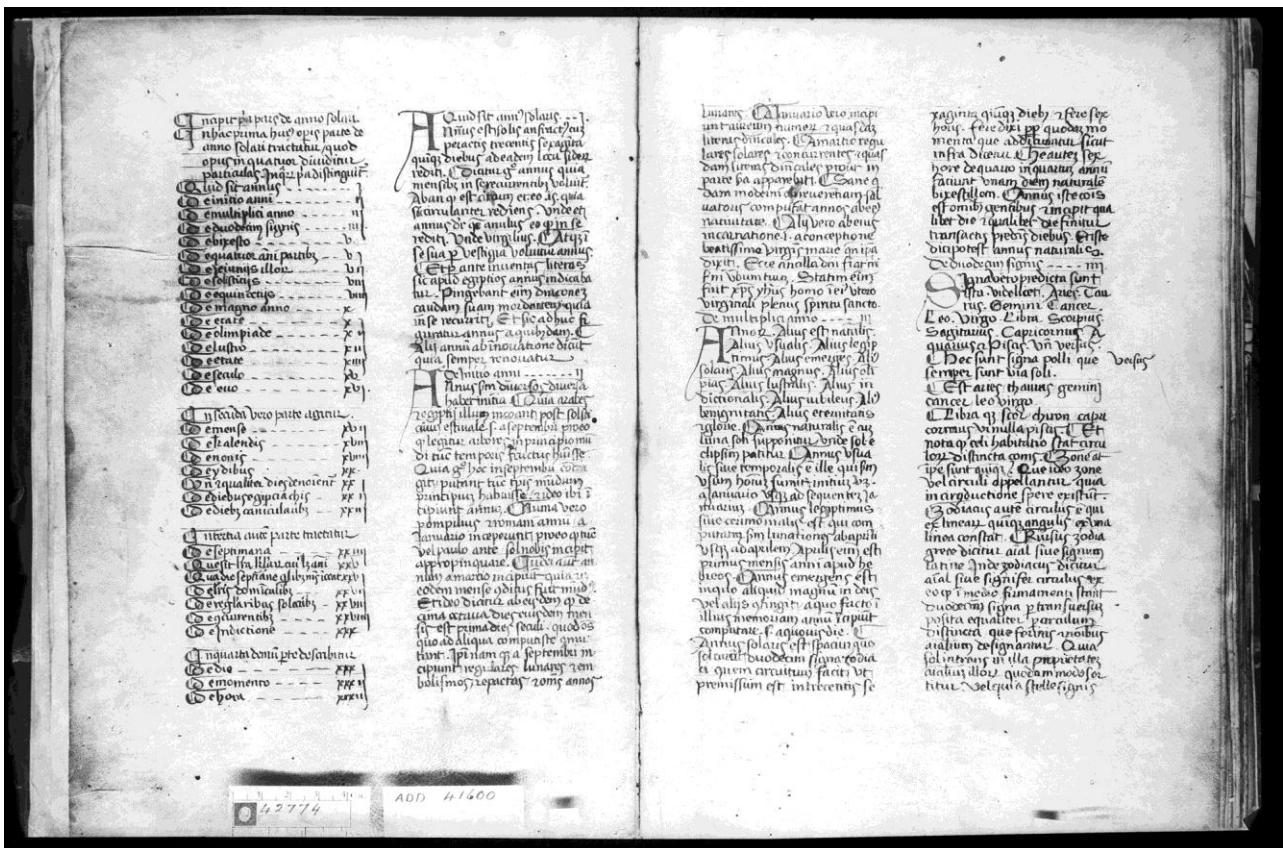 Incipit p̄a pars de anno solari.
In hac prima hui9 op̄is parte de
anno solari tractatur / quod
opus in quatuor diuiditur
particulas
Quid sit annus - - - - I
De inicio anni - - - - II
De multiplici anno - - - III
De duodecim signis - - - IIII
De bixesto - - - - V
De quatuor ani partibz - - VI
De ieiuniis illor - - - VII
De solsticiis - - - VIII
De equinectiis - - - VIIII
De magno anno - - - X
De etate - - - XI
De olimpiade - - - XII
De lustro - - - XIII
De etate - - - XIIII
De seculo - - - XV
De euo - - - XVI
In secūda vero parte agitur.
De mense - - - XVII
De kalendis - - - XVIII
De nonis - - - XVIIII
De ydibus - - - XX
Vn̄ et qualiter dies denoīent XXI
De diebus egipciachis - XXII
De diebz canicularibz - XXIII
In tertia aut̄ parte tractatur
De septimana - - - XXIIII
De regularibus solaribz - XXVIII
De cōcurrentibz - - XXVIIII
De Indictione - - - XXX
In quarta demū p̄te describitur
De die - - - XXXI
De momento - - - XXXII
De hora - - - XXXIII
Quid sit ann9 solaris. - - - I.
Annus est solis anfract9 cuz
peractis trecentis sexaginta
quiq̄ diebus ad eadem locū siderū
rediit. Dicitur g̊ annus quia
mensibz in se recurrentibz voluit̄.
circulariter rediens. Unde et
annus dr̄ q̄ anulus eo q̄ in se
rediti. Unde virgilius. Atq̄ ī
se sua p̄ vestigia voluitur annus.
Et p̄ ante inuentas literas
sic apud egiptios annus indicaba
tur. Pingebant eim draconez
caudam suam mordentem quia
in se recurrit. Et sic adhuc fi
guratur annus a quibdam.
Alij annū ab inouatione dicūt
quia semper renouatur
De initio anni - - - - II
Annus sm̄ diuersos diuersa
habet initia. Quia arabes
et egyptij illum incoant post solsti
cium estiuale .s. a septembri p̄ eo
q̄ legitur arbores in principio mū
di tūc temporis fructus hūisse.
Quia g̊ hoc in septembri cōtī
git putant tūc tp̄is mūdum
principium habuisse. et ideo ibi ī
cipiunt annū. Numa vero
pompilius et romani annū a
Januario inceperunt p̄ eo q̄ tūc
vel paulo ante sol nobis incipit
appropinquare. Iudei aut̄ an
num a martio incipiūt quia ī
eodem mense cōditus fuit mūd9.
Et ideo dicitur ab eisdem q̄ de
cima octaua dies eiusdem men
sis est prima dies seculi. quod os
quo ad aliqua computiste imiu
tant. Ipi nam q̄ a septembri in
cipiunt regulares lunares et em
bolismos et epactas et omīs annos
lunares. A Ianuario vero incipi
unt aureum numer̄ et quasdaz
literas dn̄icales. A martio regu
lares solares et concurrentes et quas
dam literas dn̄icales prout in
parte ba apparebit. Sane q̄
dam moderni ob reuerentiam sal
uatoris computāt annos ab ei9
natiuitate. Alij vero ab ei9
incarnatione .i. a conceptione
beatissime virgis marie qn̄ ip̄a
dixit. Ecce ancilla dn̄i fiat m̄
sm̄ vbum tuū. Statim eim
fuit xp̄s yhus homo ī ei9 vtero
virginali plenus spiritu sancto.
De multiplici anno - - - III
Annor. Alius est natalis.
Alius vsualis. Alius legip
timus. Alius emerges. Ali9
solaris. Alius magnus. Alius oli
pias. Alius lustralis. Alius in
dictionalis. Alius iubileus. Ali9
benignitatis. Alius eternitatis
et glorie. Annus naturalis ē cuz
luna soli supponitur vnde sol e
clipsim patitur. Annus vsua
lis siue temporalis ē ille qui sm̄
vsum homīū sumit initiū vz.
a Ianuario vsq̄ ad sequentez Ja
nuariuz. Annus legiptimus
siue cerimonialis est qui com
putatur sm̄ lunationes ab aprili
vsq̄ ad aprilem. Aprilis eim est
primus mensis anni apud he
breos. Annus emergens est
in quo aliquid magnū in deis
vel aliis cōtingit. a quo facto ī
illius memoriam annū īcipiūt
computare .s. a quouis die.
Annus solaris est spaciū quo
sol currit duodecim signa zodia
ci quem circuitum facit vt
premissum est in trecentis se
xaginta quiq̄ diebz et fere sex
horis. Fere dixi pp̄ quedaz mo
menta que adduntur sicut
infra dicetur. He autez sex
hore de quarto in quartum annū
faciunt vnam diem naturalē
bixestilem. Annus iste cōis
est omībz gentibus et incipit qua
libet die et qualibet die finitur
transactis predcis diebus. Et iste
dici potest annus naturalis.
De duodecim signis - - - - IIII
Signa vero predicta sunt
ista. videlicet. Aries. Tau
rus. Gemini. Cancer.
Leo. Virgo. Libra. Scorpius.
Sagitarius. Capricornus. A
quarius et Pisces. Vn̄ versus.
Hec sunt signa polli que
semper sunt via soli.
Versus
Est aries thaurus gemini
cancer leo virgo.
Libra q̄ scor chyron capri
cornus vrnulla pisces. Et
nota q̄ celi habitatio stat circu
lorz distincta zonis. Zone at̄
ip̄e sunt quiq̄. Que ideo zone
vel circuli appellantur quia
in circūductione spere existūt.
Zodiacus autē circulus ē qui
ex linearz quiq̄ angulis ex vna
linea constat. Rursus zodia
grece dicitur aīal siue signum
latine Inde zodiacus dicitur
aīal siue signifer circulus ex
eo q̄ ī medio firmamenti stant
duodecim signa p̄ transuersuz
posita equaliter p̄ circulum
distincta que formis et noībus
aīalium designantur. Quia
sol intrans in illa proprietatez
aīalium illorz quodam modo sor
titur. Vel quia stelle signis
42774
ADD 41600